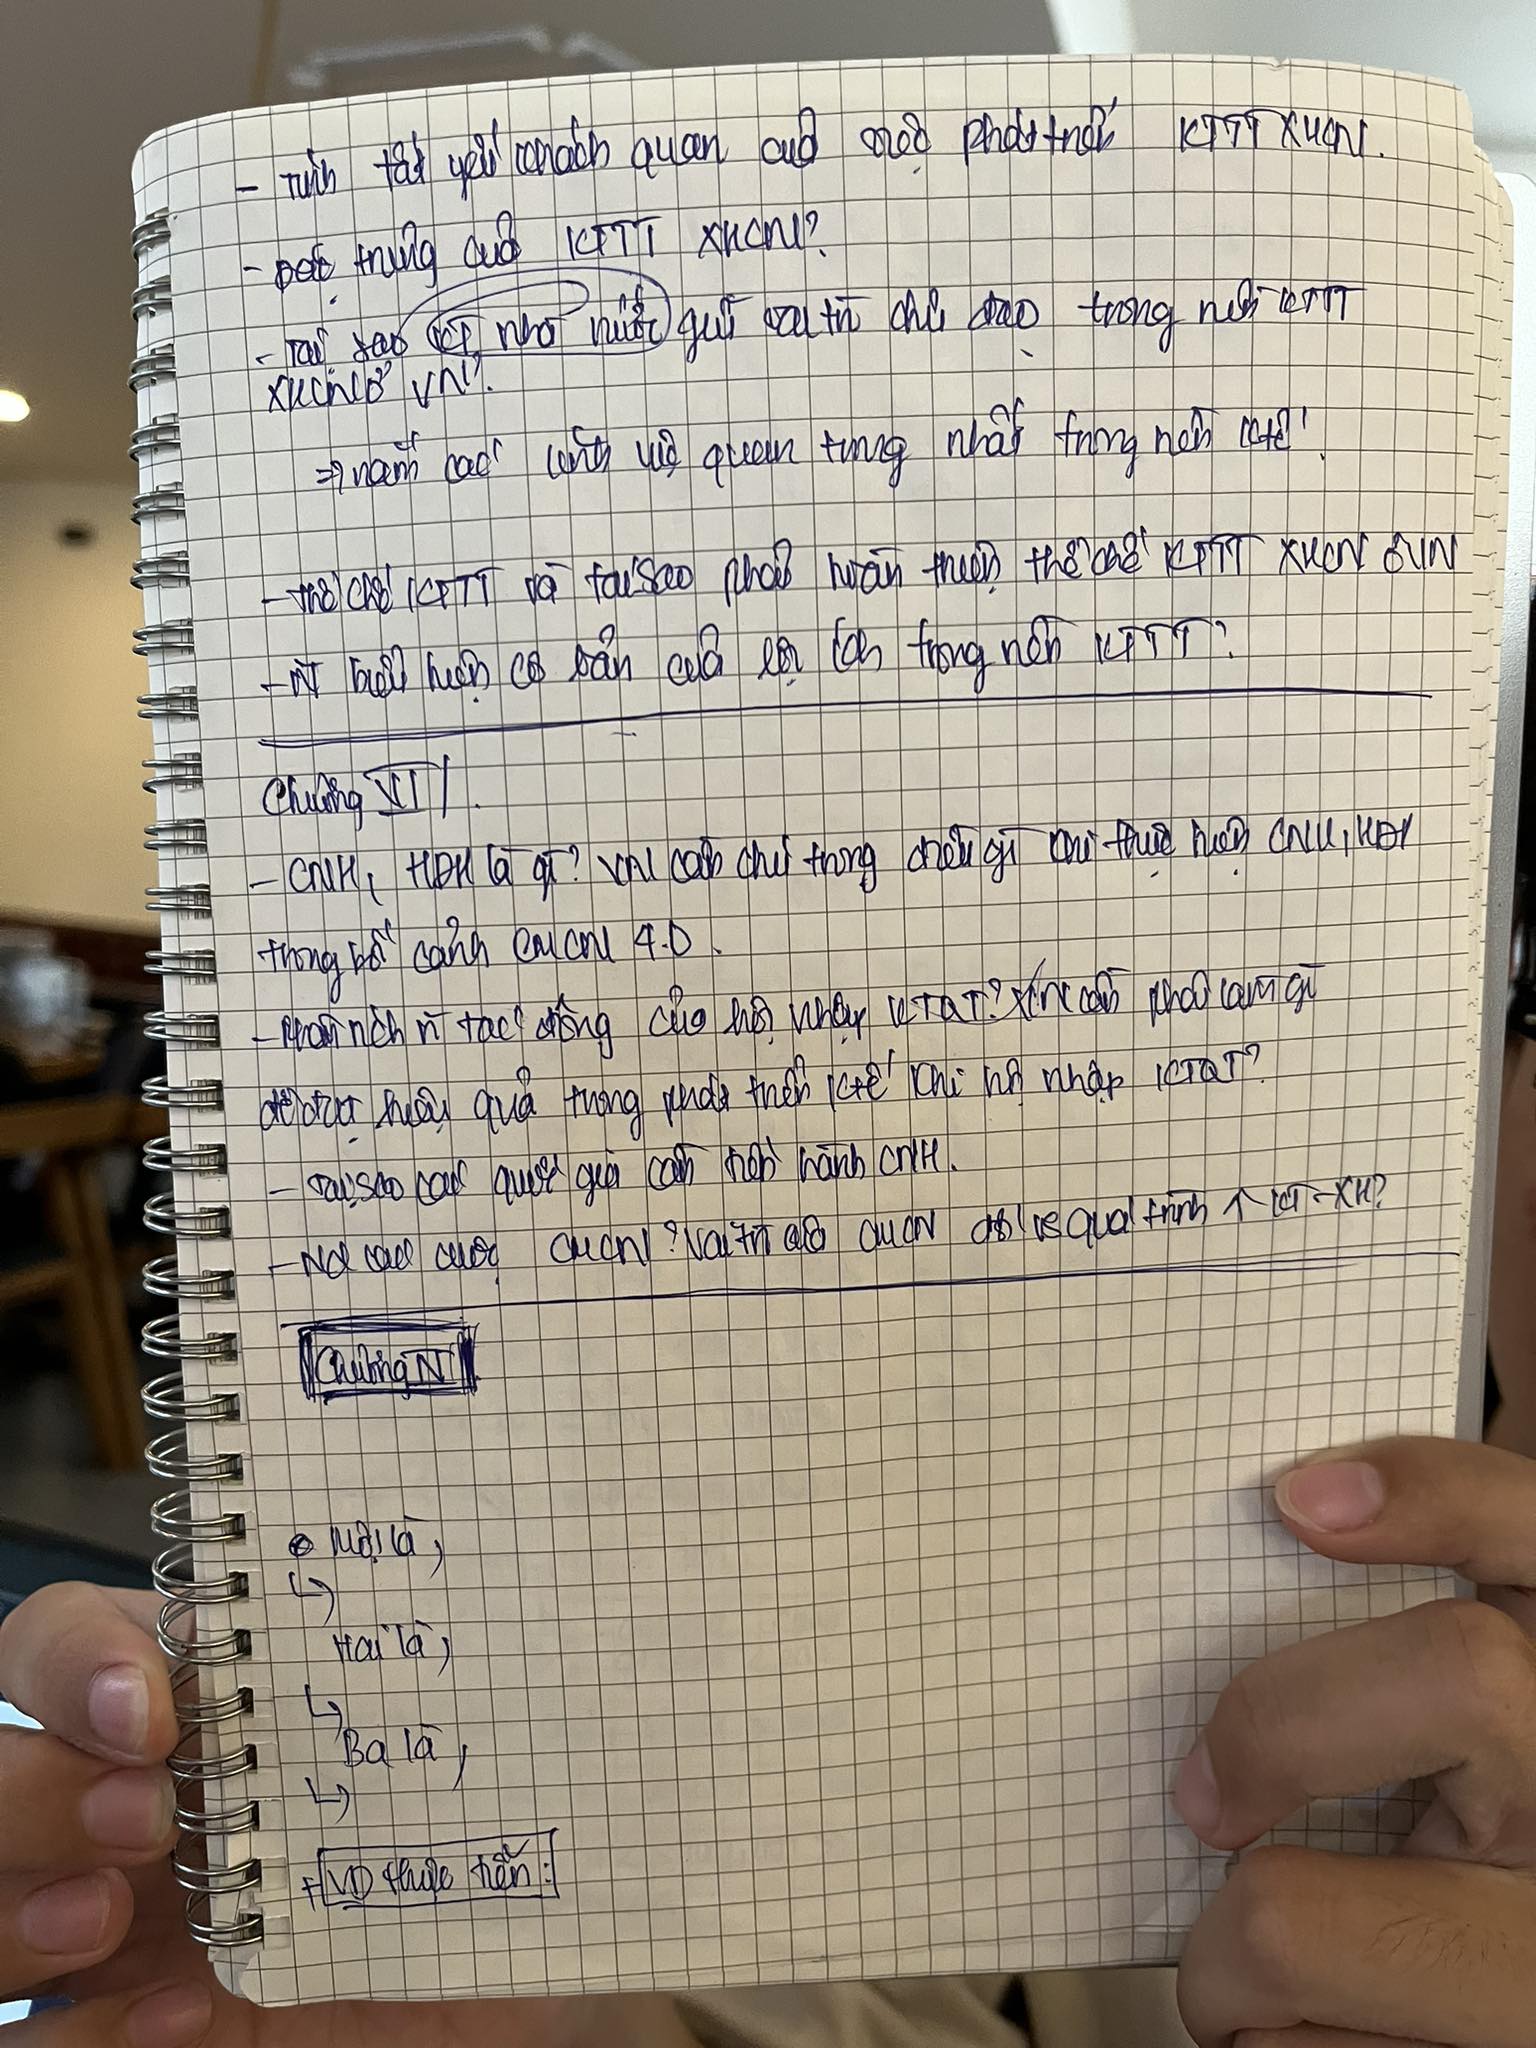 - Tính tất yếu khách quan của phát triển KTTT XHCN.
- Đặc trưng của KTTT XHCN?
- Tại sao KT nhà nước giữ vai trò chủ đạo trong nền KTTT
XHCN ở VN?
=> nắm các vị quan trọng nhất trong nền ktế!
- Thể chế KTTT và tại sao phải hoàn thiện thể chế KTTT XHCN ở VN
- N~ biểu hiện cơ bản của lợi ích trong nền KTTT?
Chương VI/.
- CNH, HĐH là gì? VN cần chú trọng điều gì khi thực hiện CNH, HĐH
trong bối cảnh CMCN 4.0.
- Phân tích n~ tác động của hội nhập KTQT? VN cần phải làm gì
để đạt hiệu quả trong phát triển ktế khi hội nhập KTQT?
- Tại sao các quốc gia cần tiến hành CNH.
- Nd các cuộc CMCN? Vai trò của CMCN đối vs quá trình ↑ KT-XH?
Chương IV
Một là,
↳
Hai là,
↳
Ba là,
↳
+ VD thực tiễn: